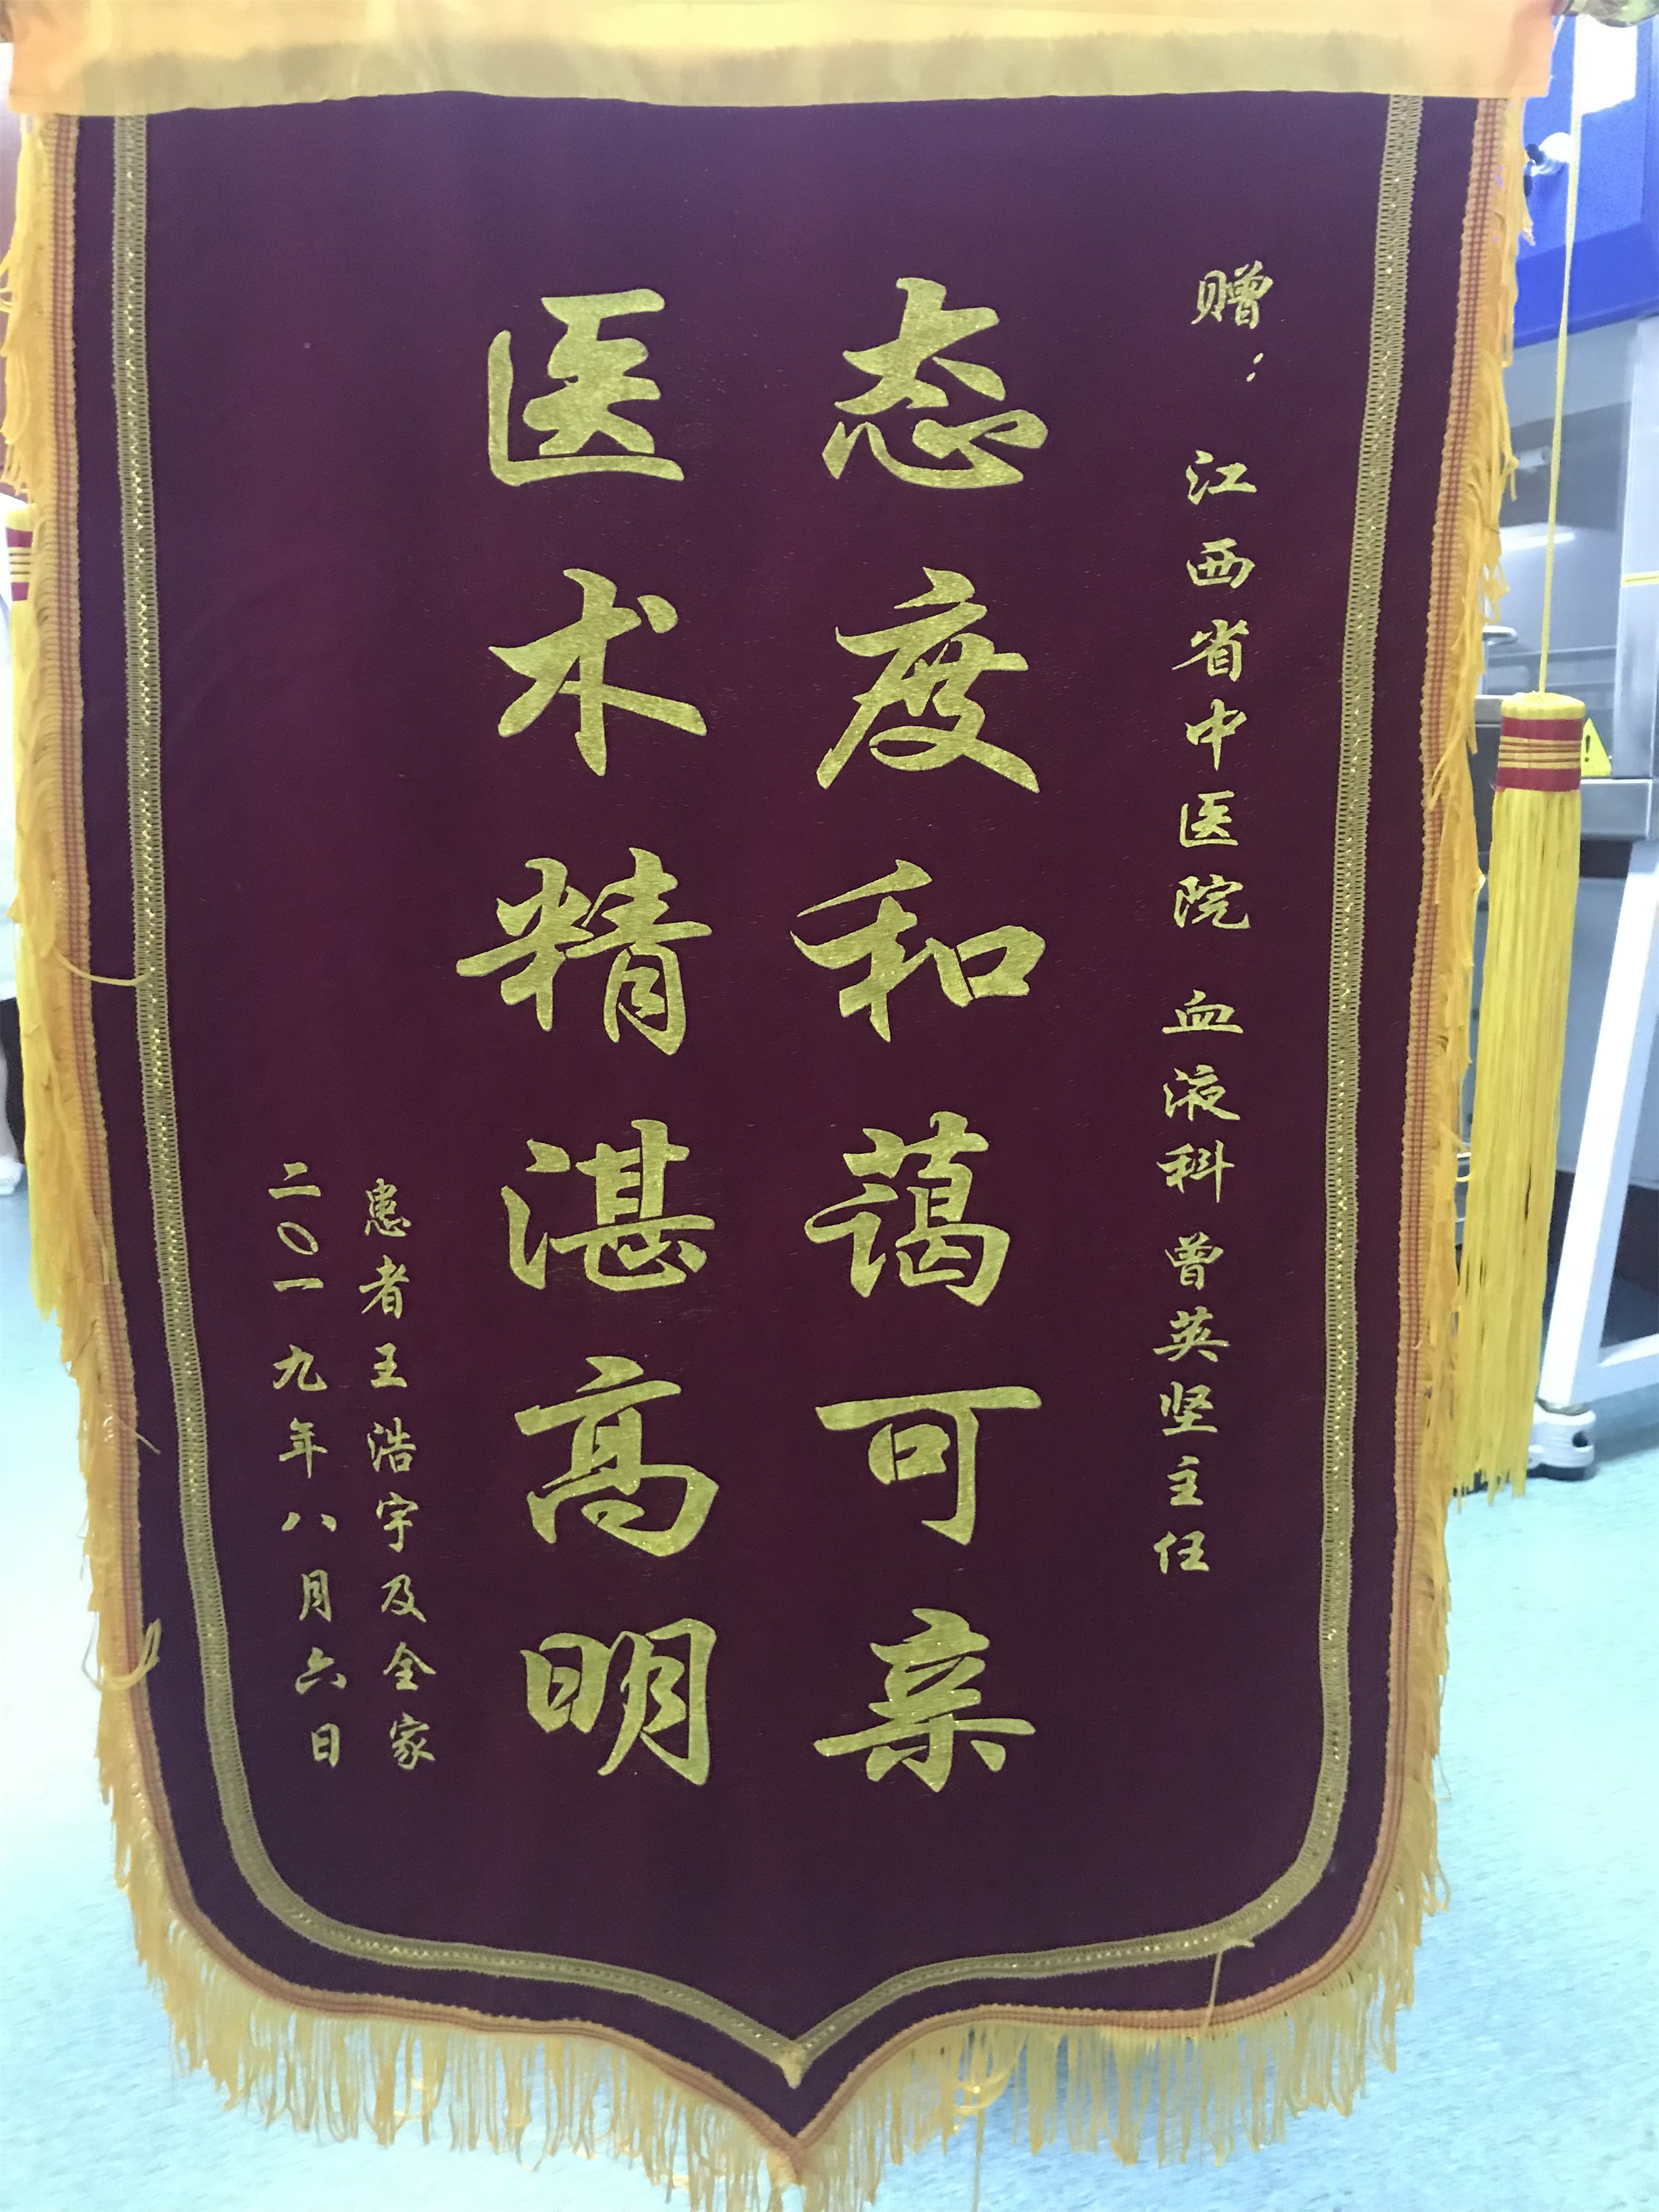 赠：江西省中医院 血液科 曾英坚主任
态度和蔼可亲
医术精湛高明
患者王浩宇及全家
二〇一九年八月六日